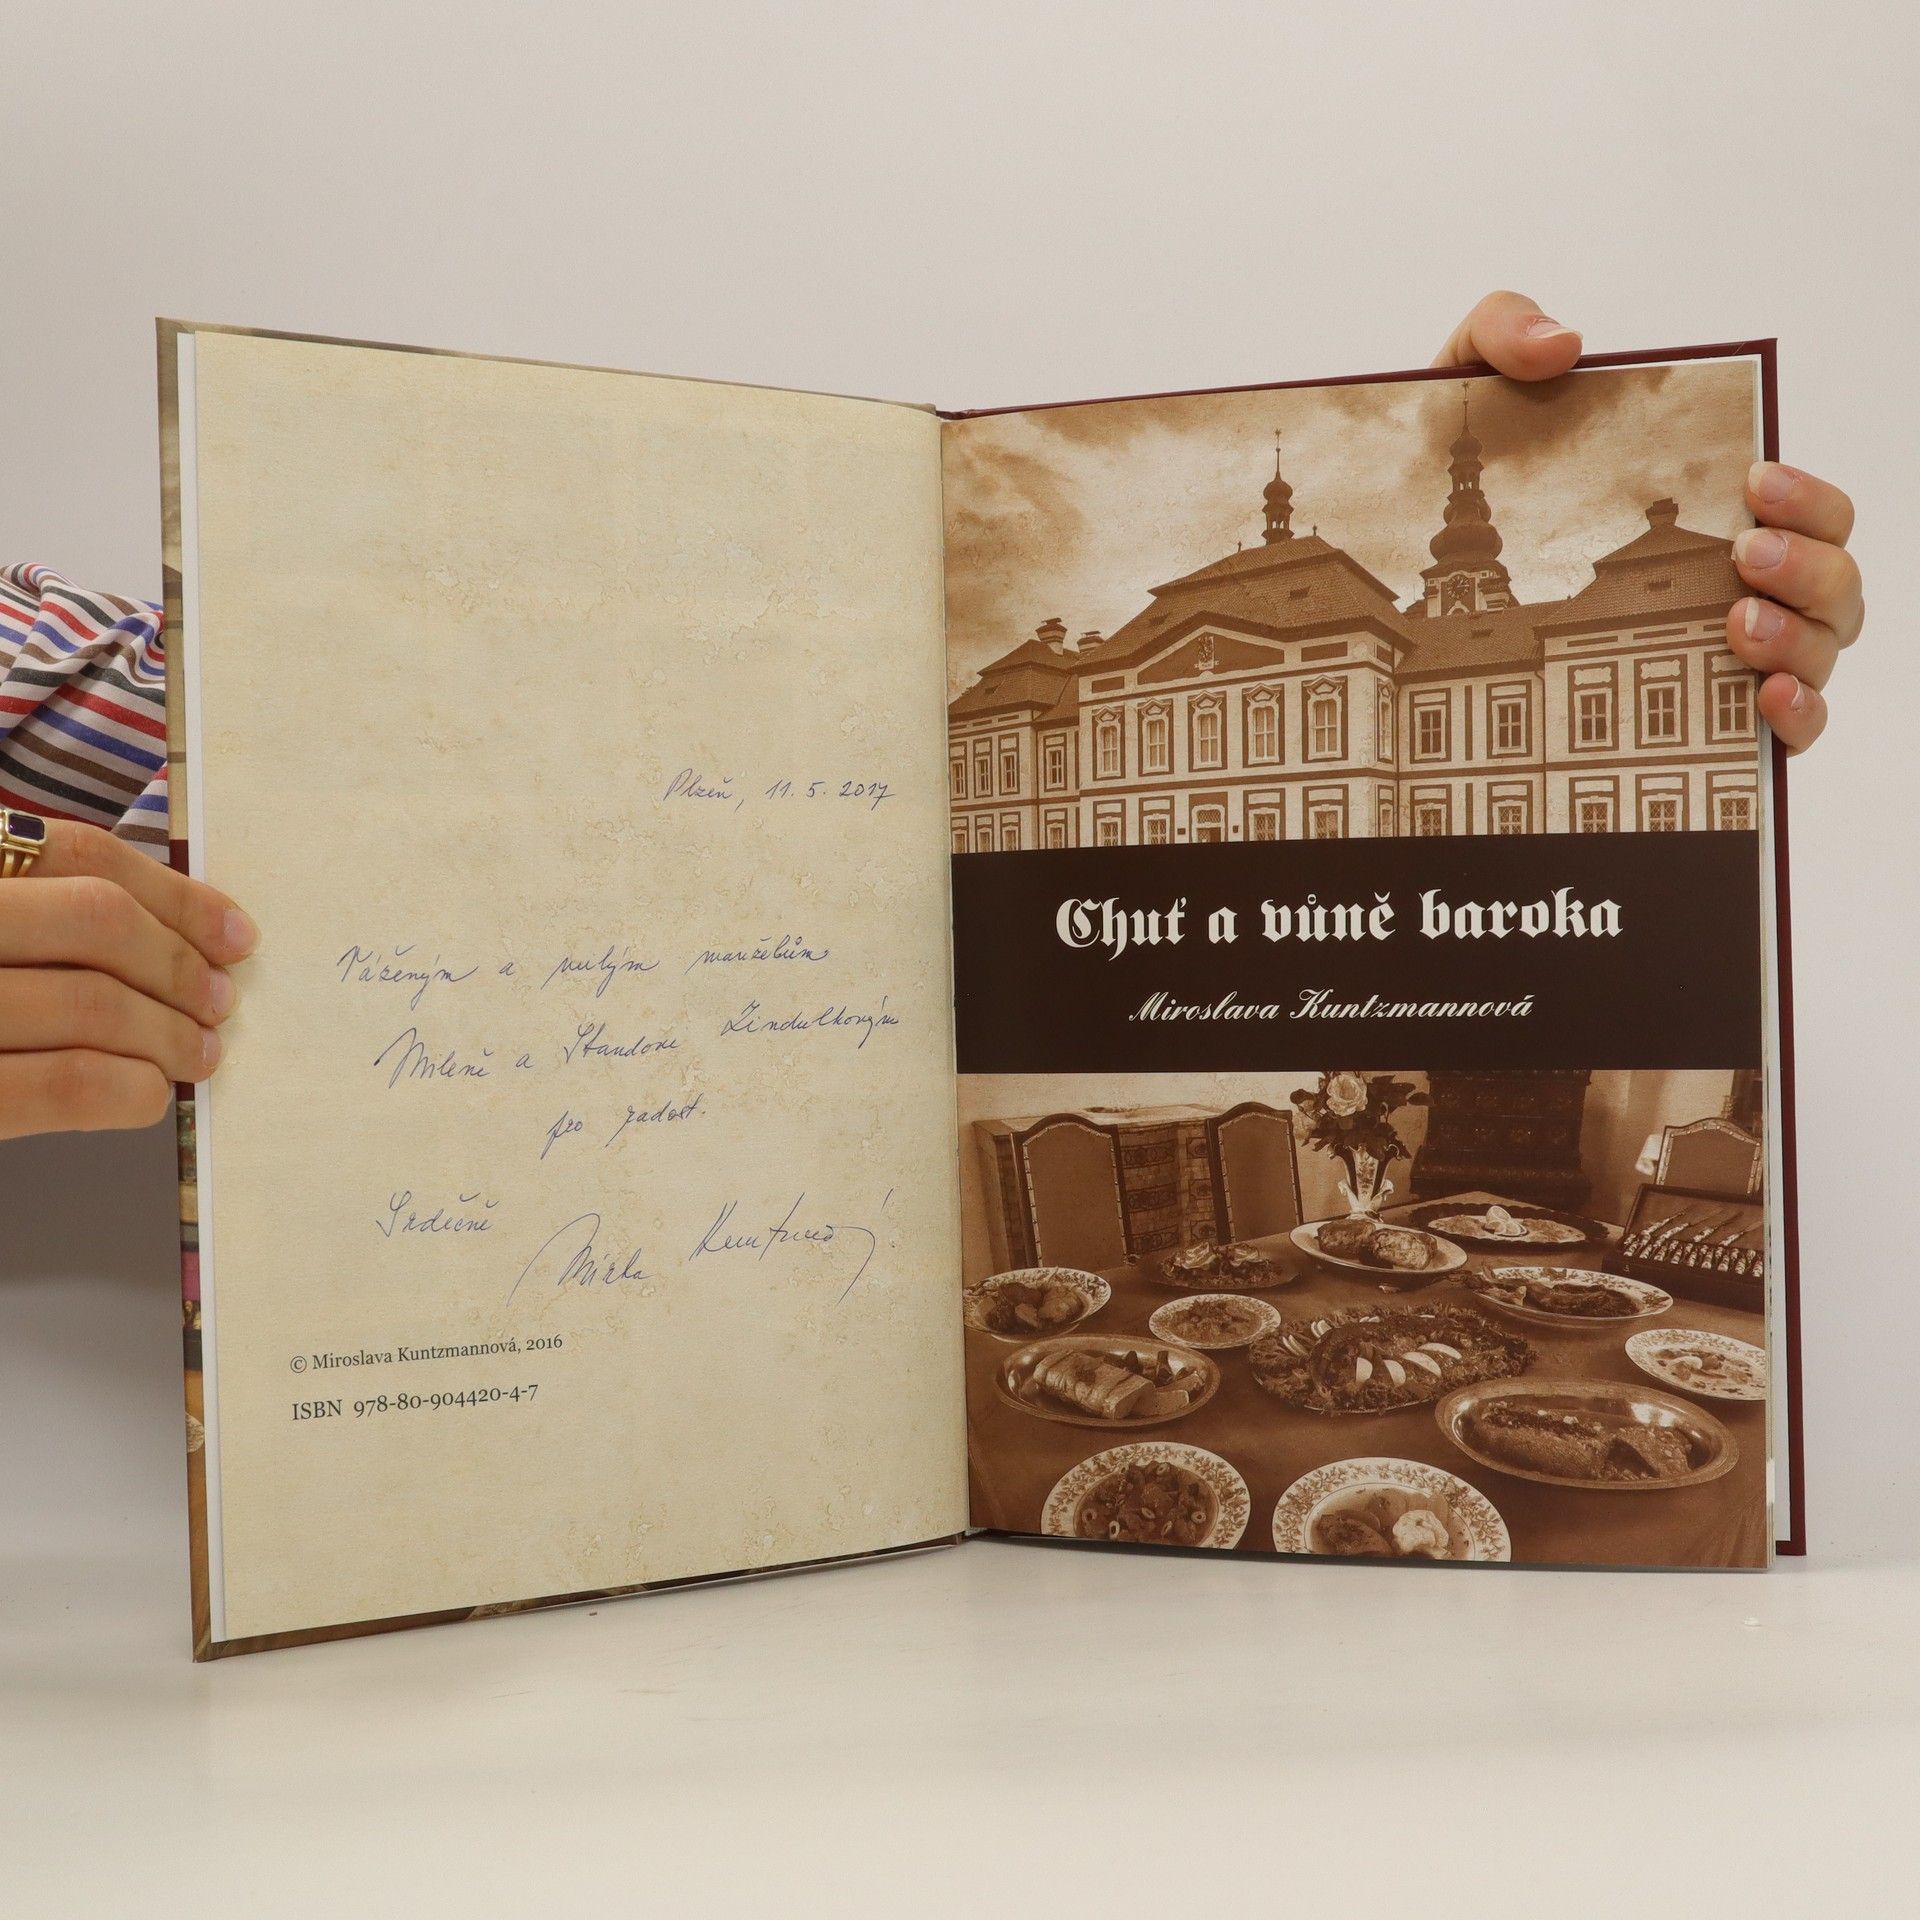 Plzeň, 11. 5. 2017
Váženým a milým manželům
Mileně a Standovi Zindulkovým
pro radost.
Srdečně
Mirka
© Miroslava Kuntzmannová, 2016
ISBN 978-80-904420-4-7
Chuť a vůně baroka
Miroslava Kuntzmannová